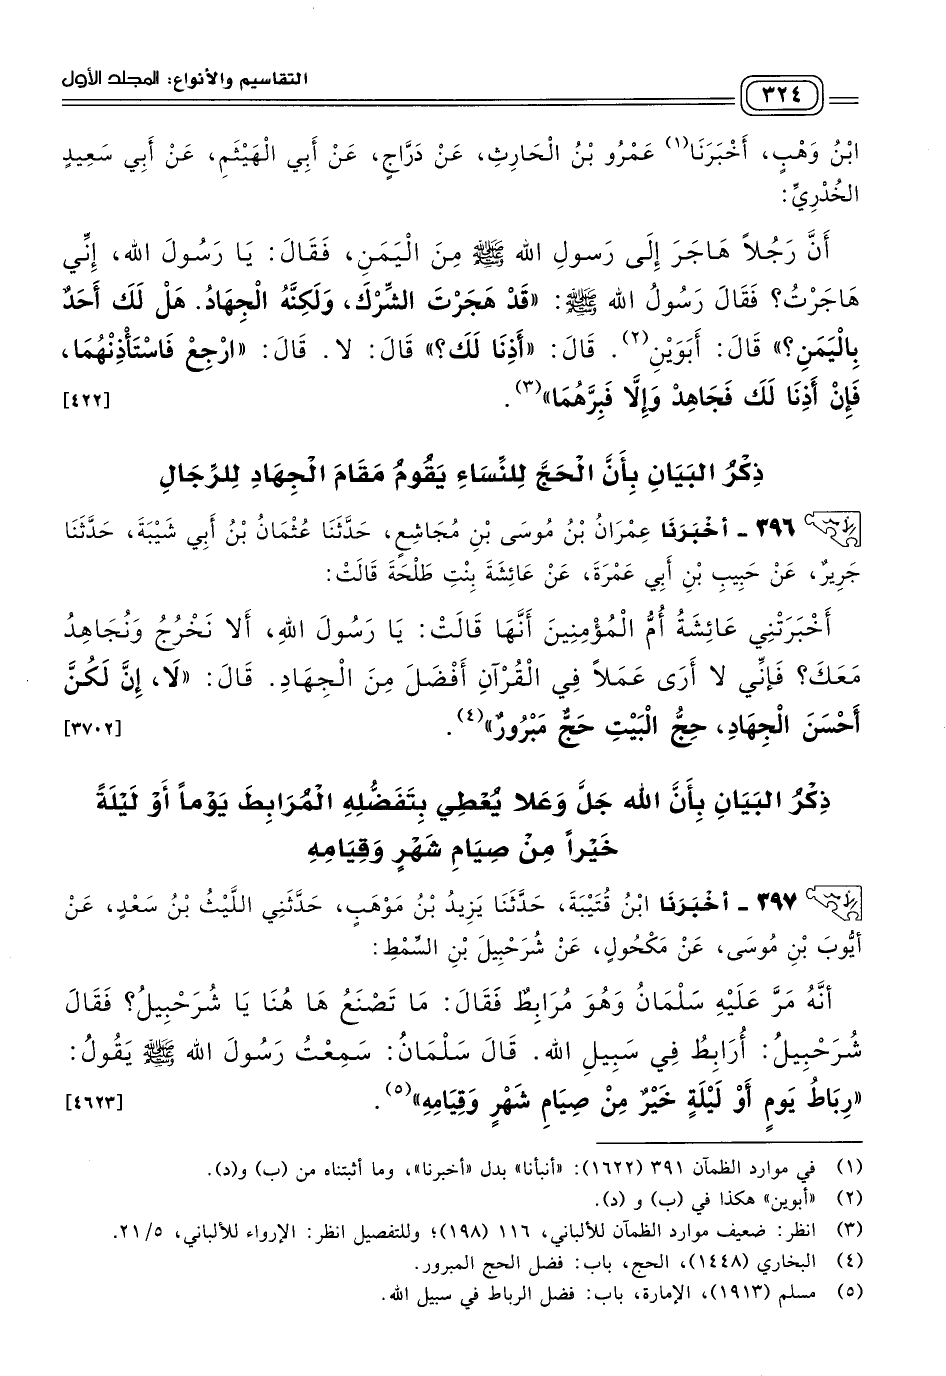 التقاسيم والأنواع: المجلد الأول
٣٢٤
ابْنُ وَهْبٍ، أَخْبَرَنَا(١) عَمْرُو بْنُ الْحَارِثِ، عَنْ دَرَّاجٍ، عَنْ أَبِي الْهَيْثَمِ، عَنْ أَبِي سَعِيدٍ
الخُدْرِيِّ:
أَنَّ رَجُلاً هَاجَرَ إِلَى رَسولِ الله ﷺ مِنَ الْيَمَنِ، فَقَالَ: يَا رَسُولَ الله، إِنِّي
هَاجَرْتُ؟ فَقَالَ رَسُولُ الله ﷺ: «قَدْ هَجَرْتَ الشِّرْكَ، وَلَكِنَّهُ الْجِهَادُ. هَلْ لَكَ أَحَدٌ
بِالْيَمَنِ؟» قَالَ: أَبَوَيْنِ(٢). قَالَ: «أَذِنَا لَكَ؟» قَالَ: لا. قَالَ: «ارْجِعْ فَاسْتَأْذِنْهُمَا،
فَإِنْ أَذِنَا لَكَ فَجَاهِدْ وَإِلَّا فَبِرَّهُمَا»(٣). [٤٢٢]
ذِكْرُ البَيَانِ بِأَنَّ الْحَجَّ لِلنِّسَاءِ يَقُومُ مَقَامَ الْجِهَادِ لِلرِّجَالِ
٣٩٦ - أخْبَرَنَا عِمْرَانُ بْنُ مُوسَى بْنِ مُجَاشِعٍ، حَدَّثَنَا عُثْمَانُ بْنُ أَبِي شَيْبَةَ، حَدَّثَنَا
جَرِيرٌ، عَنْ حَبِيبِ بْنِ أَبِي عَمْرَةَ، عَنْ عَائِشَةَ بِنْتِ طَلْحَةَ قَالَتْ:
أَخْبَرَتْنِي عَائِشَةُ أُمُّ الْمُؤْمِنِينَ أَنَّهَا قَالَتْ: يَا رَسُولَ اللهِ، أَلا نَخْرُجُ وَنُجَاهِدُ
مَعَكَ؟ فَإِنِّي لا أَرَى عَمَلاً فِي الْقُرْآنِ أَفْضَلَ مِنَ الْجِهَادِ. قَالَ: «لَا، إِنَّ لَكُنَّ
أَحْسَنَ الْجِهَادِ، حِجُّ الْبَيْتِ حَجٌّ مَبْرُورٌ»(٤). [٣٧٠٢]
ذِكْرُ البَيَانِ بِأَنَّ الله جَلَّ وَعَلا يُعْطِي بِتَفَضُّلِهِ الْمُرَابِطَ يَوْماً أَوْ لَيْلَةً
خَيْراً مِنْ صِيَامِ شَهْرٍ وَقِيَامِهِ
٣٩٧ - أخْبَرَنَا ابْنُ قُتَيْبَةَ، حَدَّثَنَا يَزِيدُ بْنُ مَوْهَبٍ، حَدَّثَنِي اللَّيْثُ بْنُ سَعْدٍ، عَنْ
أيُّوبَ بْنِ مُوسَى، عَنْ مَكْحُولٍ، عَنْ شُرَحْبِيلَ بْنِ السِّمْطِ:
أنَّهُ مَرَّ عَلَيْهِ سَلْمَانُ وَهُوَ مُرَابِطٌ فَقَالَ: مَا تَصْنَعُ هَا هُنَا يَا شُرَحْبِيلُ؟ فَقَالَ
شُرَحْبِيلُ: أُرَابِطُ فِي سَبِيلِ الله. قَالَ سَلْمَانُ: سَمِعْتُ رَسُولَ الله ﷺ يَقُولُ:
«رِبَاطُ يَومٍ أَوْ لَيْلَةٍ خَيْرٌ مِنْ صِيَامِ شَهْرٍ وَقِيَامِهِ»(٥). [٤٦٢٣]
(١) في موارد الظمآن ٣٩١ (١٦٢٢): «أنبأنا» بدل «أخبرنا»، وما أثبتناه من (ب) و(د).
(٢) «أبوين» هكذا في (ب) و (د).
(٣) انظر: ضعيف موارد الظمآن للألباني، ١١٦ (١٩٨)؛ وللتفصيل انظر: الإرواء للألباني، ٢١/٥.
(٤) البخاري (١٤٤٨)، الحج، باب: فضل الحج المبرور.
(٥) مسلم (١٩١٣)، الإمارة، باب: فضل الرباط في سبيل الله.